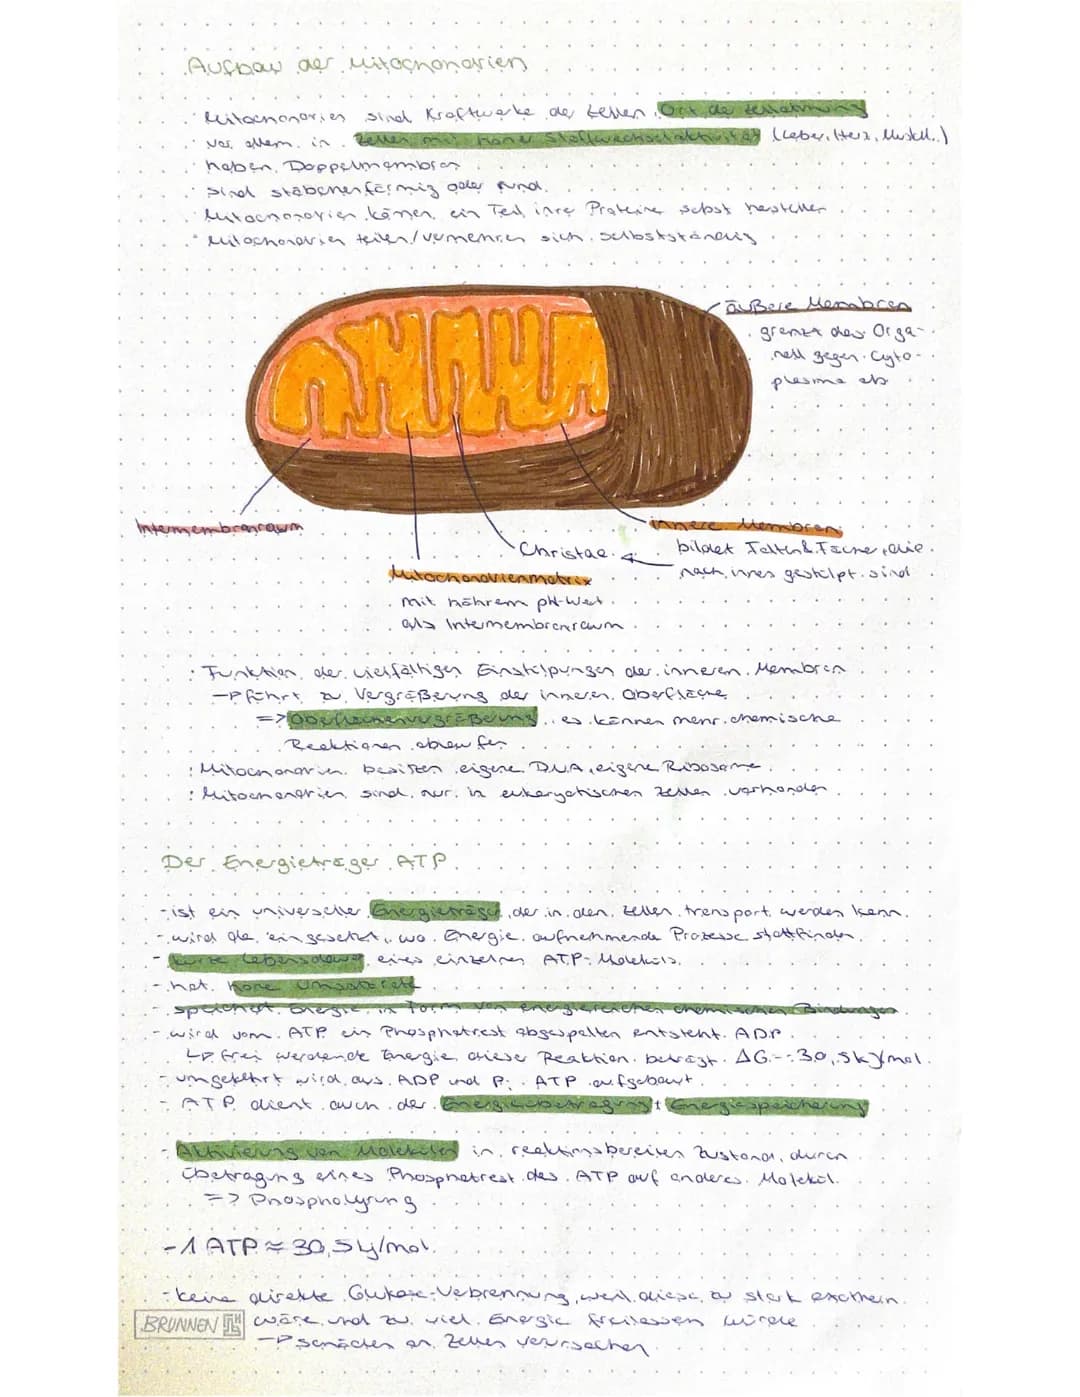 Aufbau der Mitochondrien
· Mitochondrien sind Kraftwerke der Zellen, Ort der Zellatmung
· vor allem in Zellen mit hoher Stoffwechselaktivität (Leber, Herz, Muskel..)
· haben Doppelmembran
· sind stäbchenförmig oder rund
· Mitochondrien können ein Teil ihre Proteine selbst herstellen
· Mitochondrien teilen/vermehren sich selbstständig
äußere Membran
grenzt das Orga-
nell gegen Cyto-
plasma ab
Intermembranraum
innere Membran
Christae
bildet Falten & Fächer, die
nach innen gestülpt sind
Mitochondrienmatrix
mit höhrem pH-Wert
als Intermembranraum
· Funktion der vielfältigen Einstülpungen der inneren Membran
→ führt zu Vergrößerung der inneren Oberfläche
=> Oberflächenvergrößerung, es können mehr chemische
Reaktionen ablaufen
· Mitochondrien besitzen eigene DNA, eigene Ribosome
· Mitochondrien sind nur in eukaryotischen Zellen vorhanden
Der Energieträger ATP
- ist ein universeller Energieträger, der in den Zellen transport werden kann
- wird da eingesetzt, wo Energie aufnehmende Prozesse stattfinden
- kurze Lebensdauer eines einzelnen ATP-Moleküls
- hat hohe Umsatzrate
- speichert Energie in Form von energiereichen chemischen Bindungen
- wird vom ATP ein Phosphatrest abgespalten entsteht ADP
↳ frei werdende Energie dieser Reaktion beträgt ΔG = -30,5 kJ/mol
- umgekehrt wird aus ADP und Pi ATP aufgebaut
- ATP dient auch der Energieübertragung + Energiespeicherung
- Aktivierung von Molekülen in reaktionsbereiten Zustand, durch
Übetragung eines Phosphatrest des ATP auf anderes Molekül
=> Phospholyrung
- 1 ATP ≈ 30,5 kJ/mol
- keine direkte Glukose-Verbrennung, weil diese zu stark exotherm
wäre und zu viel Energie freilassen würde
→ schäden an Zellen verursachen
BRUNNEN